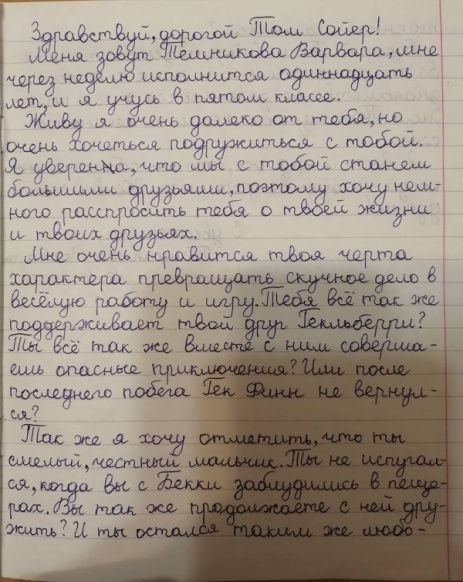 Здравствуй, дорогой Том Сойер!
Меня зовут Темникова Варвара, мне
через неделю исполнится одиннадцать
лет, и я учусь в пятом классе.
Живу я очень далеко от тебя, но
очень хочеться подружиться с тобой.
Я уверенна, что мы с тобой станем
большими друзьями, поэтому хочу нем-
ного расспросить тебя о твоей жизни
и твоих друзьях.
Мне очень нравится твоя черта
характера превращать скучное дело в
весёлую работу и игру. Тебя всё так же
поддерживает твой друг Гекльберри?
Ты всё так же вместе с ним соверша-
ешь опасные приключения? Или после
последнего побега Гек Финн не вернул-
ся?
Так же я хочу отметить, что ты
смелый, честный мальчик. Ты не испугал-
ся, когда вы с Бекки заблудились в пеще-
рах. Вы так же продолжаете с ней дру-
жить? И ты остался таким же любо-